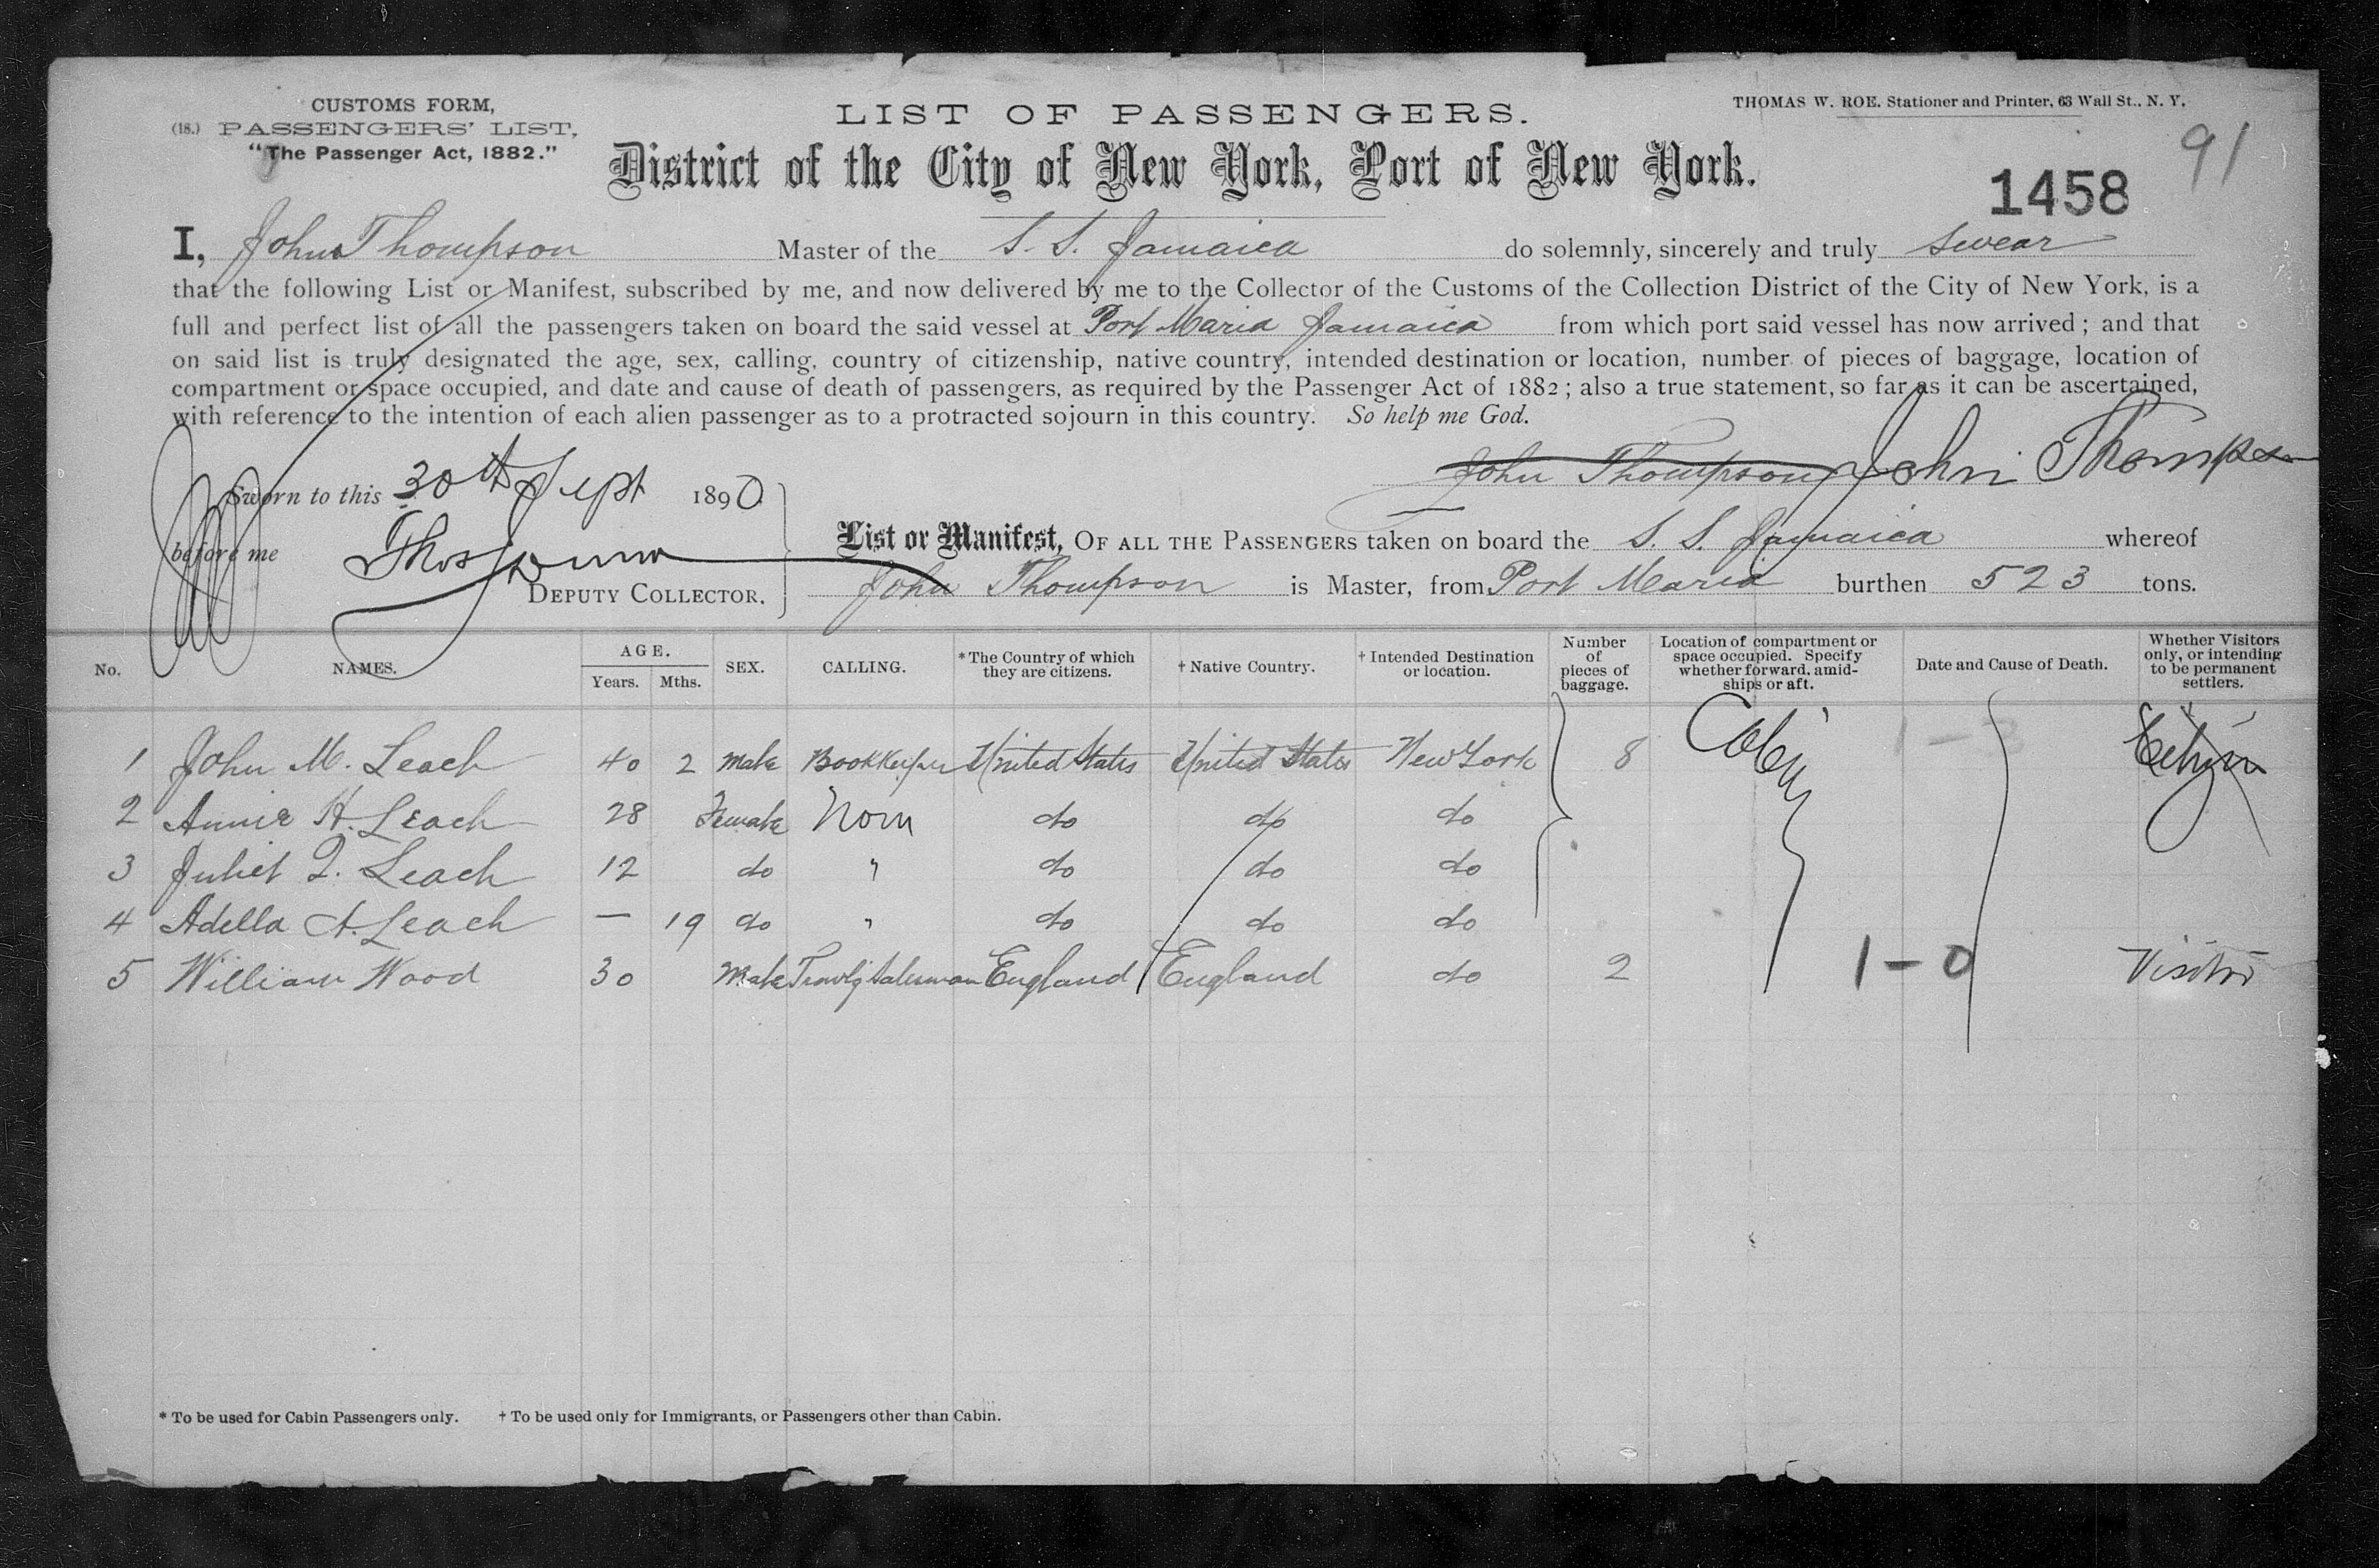 CUSTOMS FORM,
(18.) PASSENGERS' LIST,
"The Passenger Act, 1882."
LIST OF PASSENGERS.
THOMAS W. ROE. Stationer and Printer, 63 Wall St., N. Y.
91
District of the City of New York, Port of New York.
1458
I, John Thompson Master of the S. S. Jamaica do solemnly, sincerely and truly swear
that the following List or Manifest, subscribed by me, and now delivered by me to the Collector of the Customs of the Collection District of the City of New York, is a
full and perfect list of all the passengers taken on board the said vessel at Port Maria Jamaica from which port said vessel has now arrived; and that
on said list is truly designated the age, sex, calling, country of citizenship, native country, intended destination or location, number of pieces of baggage, location of
compartment or space occupied, and date and cause of death of passengers, as required by the Passenger Act of 1882; also a true statement, so far as it can be ascertained,
with reference to the intention of each alien passenger as to a protracted sojourn in this country. So help me God.
John Thompson John Thompson
Sworn to this 30th Sept 1890
before me Thos
DEPUTY COLLECTOR.
List or Manifest, OF ALL THE PASSENGERS taken on board the S. S. Jamaica whereof
John Thompson is Master, from Port Maria burthen 523 tons.
No. NAMES. AGE. Years. Mths. SEX. CALLING. *The Country of which they are citizens. † Native Country. † Intended Destination or location. Number of pieces of baggage. Location of compartment or space occupied. Specify whether forward, amidships or aft. Date and Cause of Death. Whether Visitors only, or intending to be permanent settlers.
1 John M. Leach 40 2 Male Bookkeeper United States United States New York 8 Cabin 1-3
2 Annie H. Leach 28 Female Non do do do
3 Juliet Q. Leach 12 do " do do do
4 Adella A. Leach — 19 do " do do do
5 William Wood 30 Male Travlg Salesman England England do 2 1-0 Visitor
* To be used for Cabin Passengers only. † To be used only for Immigrants, or Passengers other than Cabin.